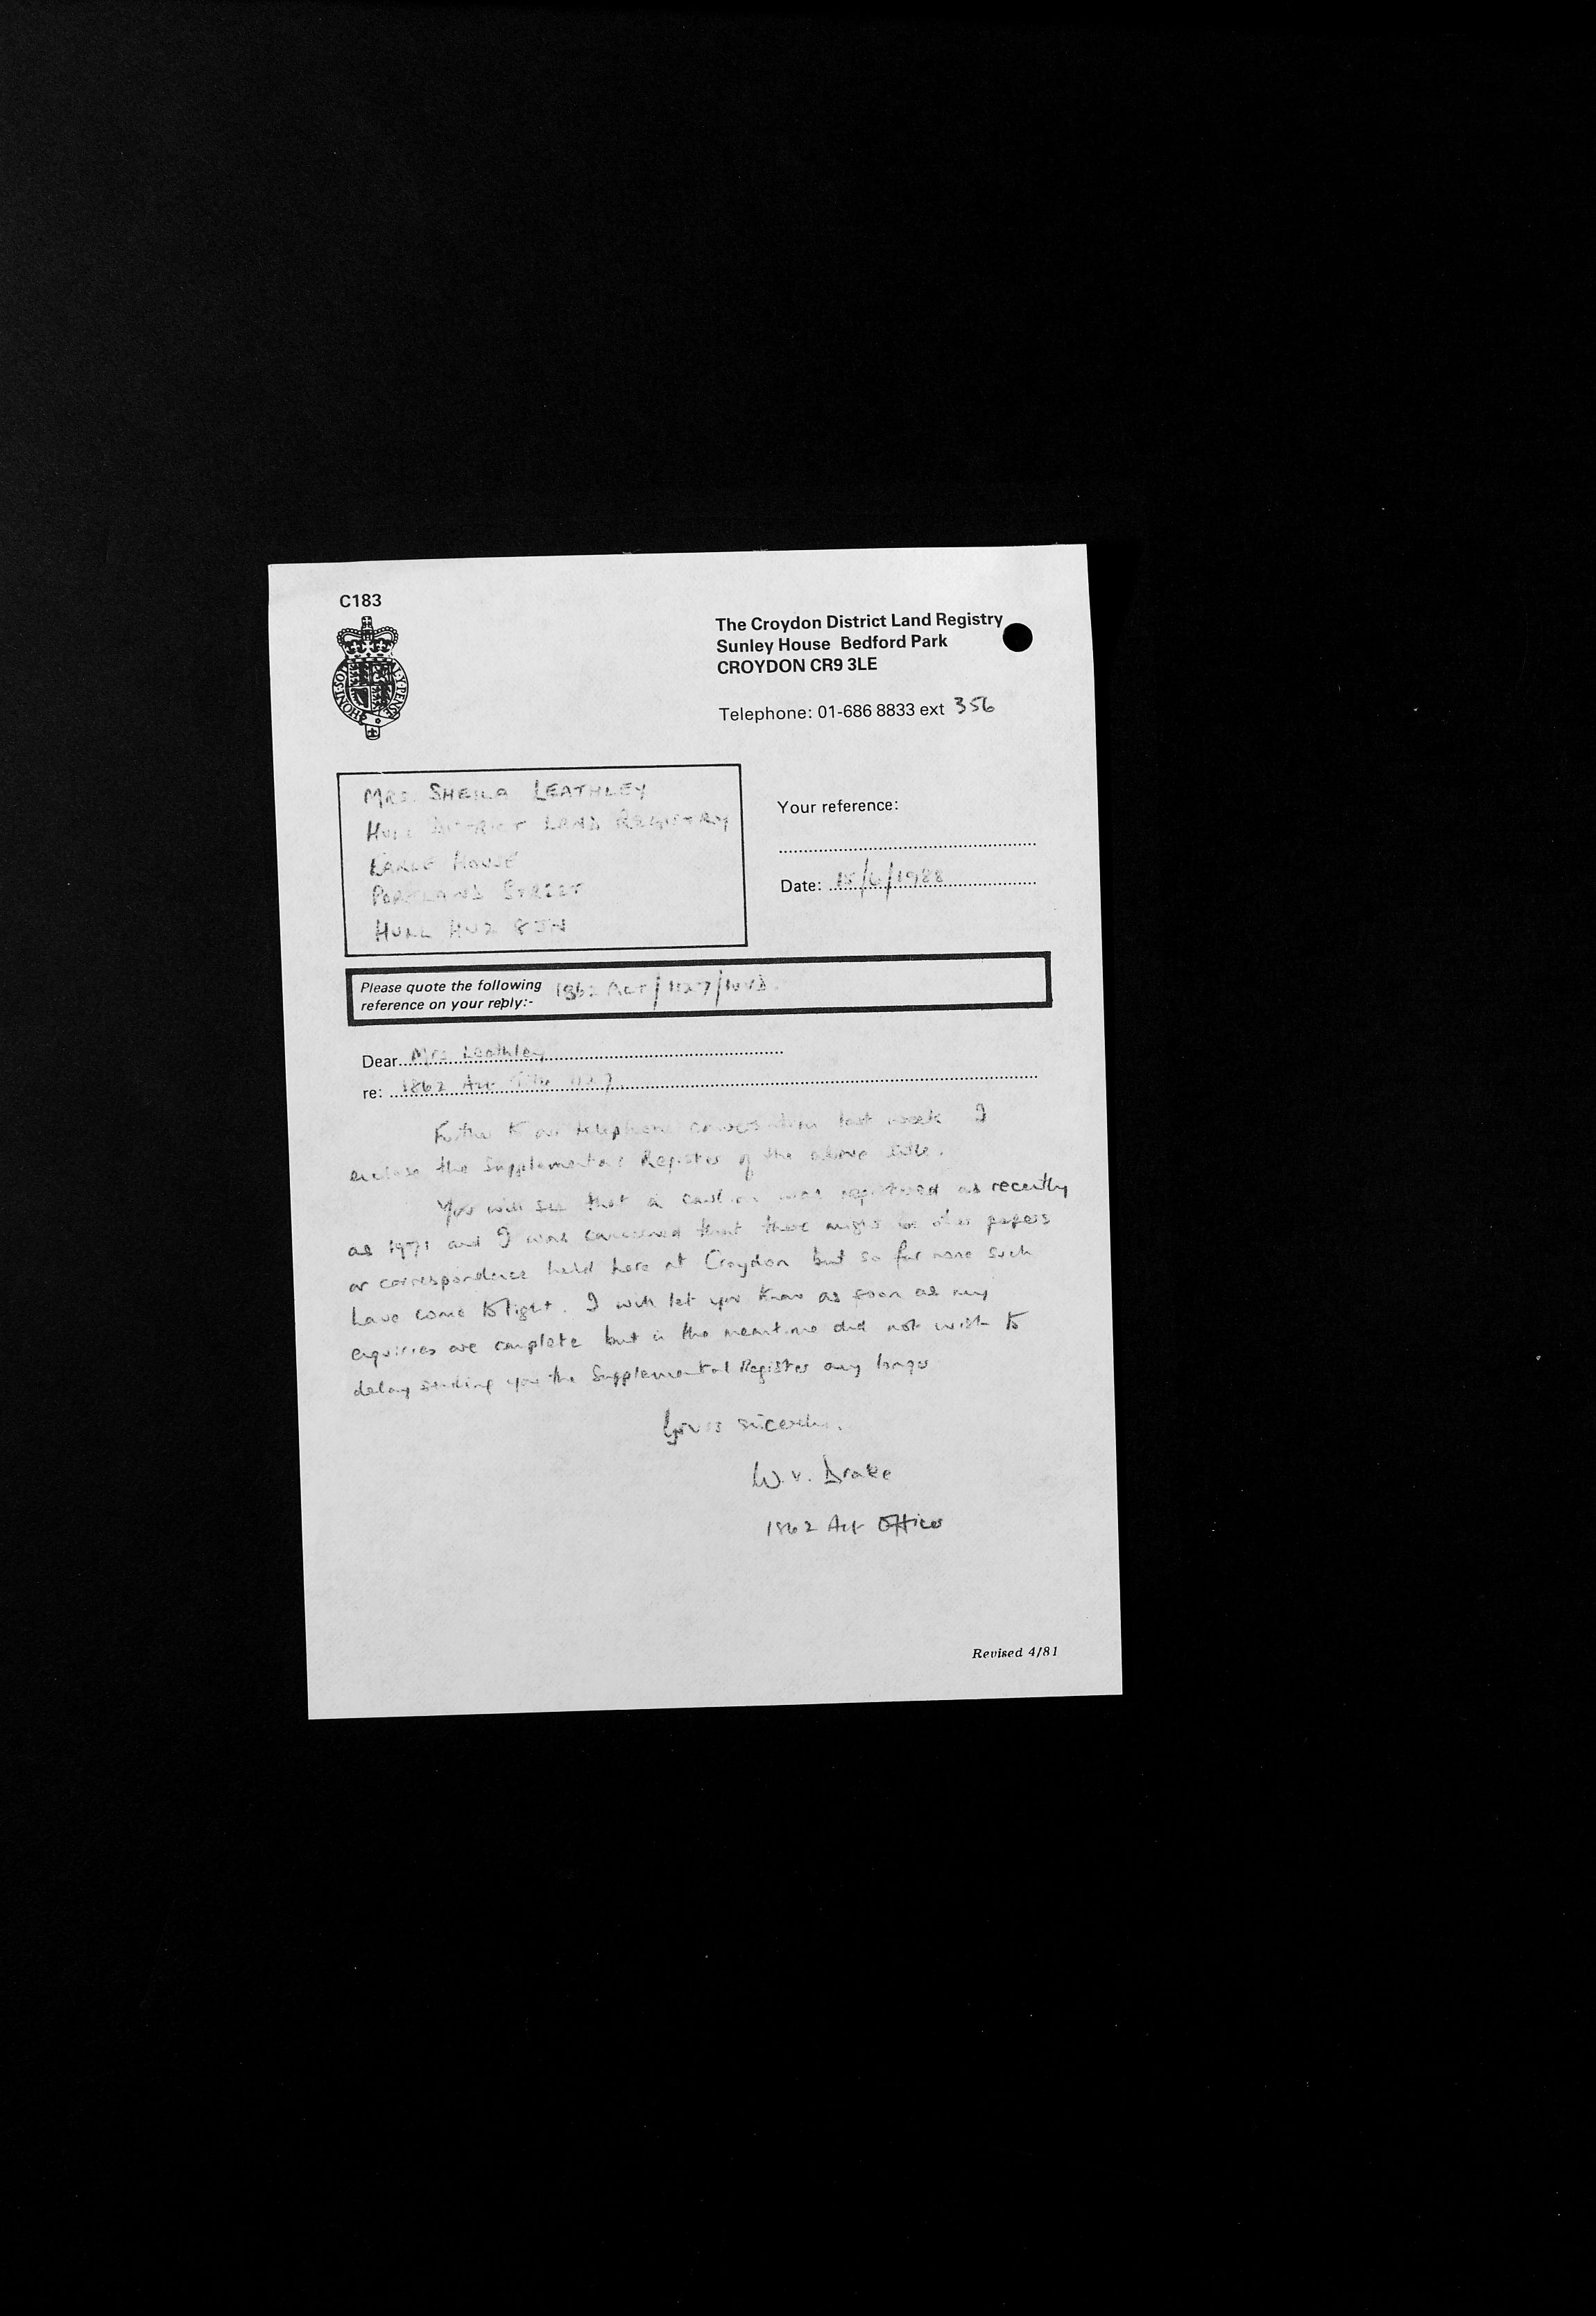 C183
The Croydon District Land Registry
Sunley House Bedford Park
CROYDON CR9 3LE
Telephone: 01-686 8833 ext 356
HONI·SOI Y·PENSE
MRS. SHEILA LEATHLEY
HULL DISTRICT LAND REGISTRY
EARLE HOUSE
PORTLAND STREET
HULL HU2 8JN
Your reference:
Date: 15/6/1988
Please quote the following
reference on your reply:- 1862 ACT/1127/WVD
Dear Mrs Leathley
re: 1862 Act Title 1127
Further to our telephone conversation last week I
enclose the Supplemental Register of the above title.
You will see that a caution was registered as recently
as 1971 and I was concerned that there might be other papers
or correspondence held here at Croydon but so far none such
have come to light. I will let you know as soon as my
enquiries are complete but in the meantime did not wish to
delay sending you the Supplemental Register any longer
Yours sincerely.
W.V. Drake
1862 Act Officer
Revised 4/81